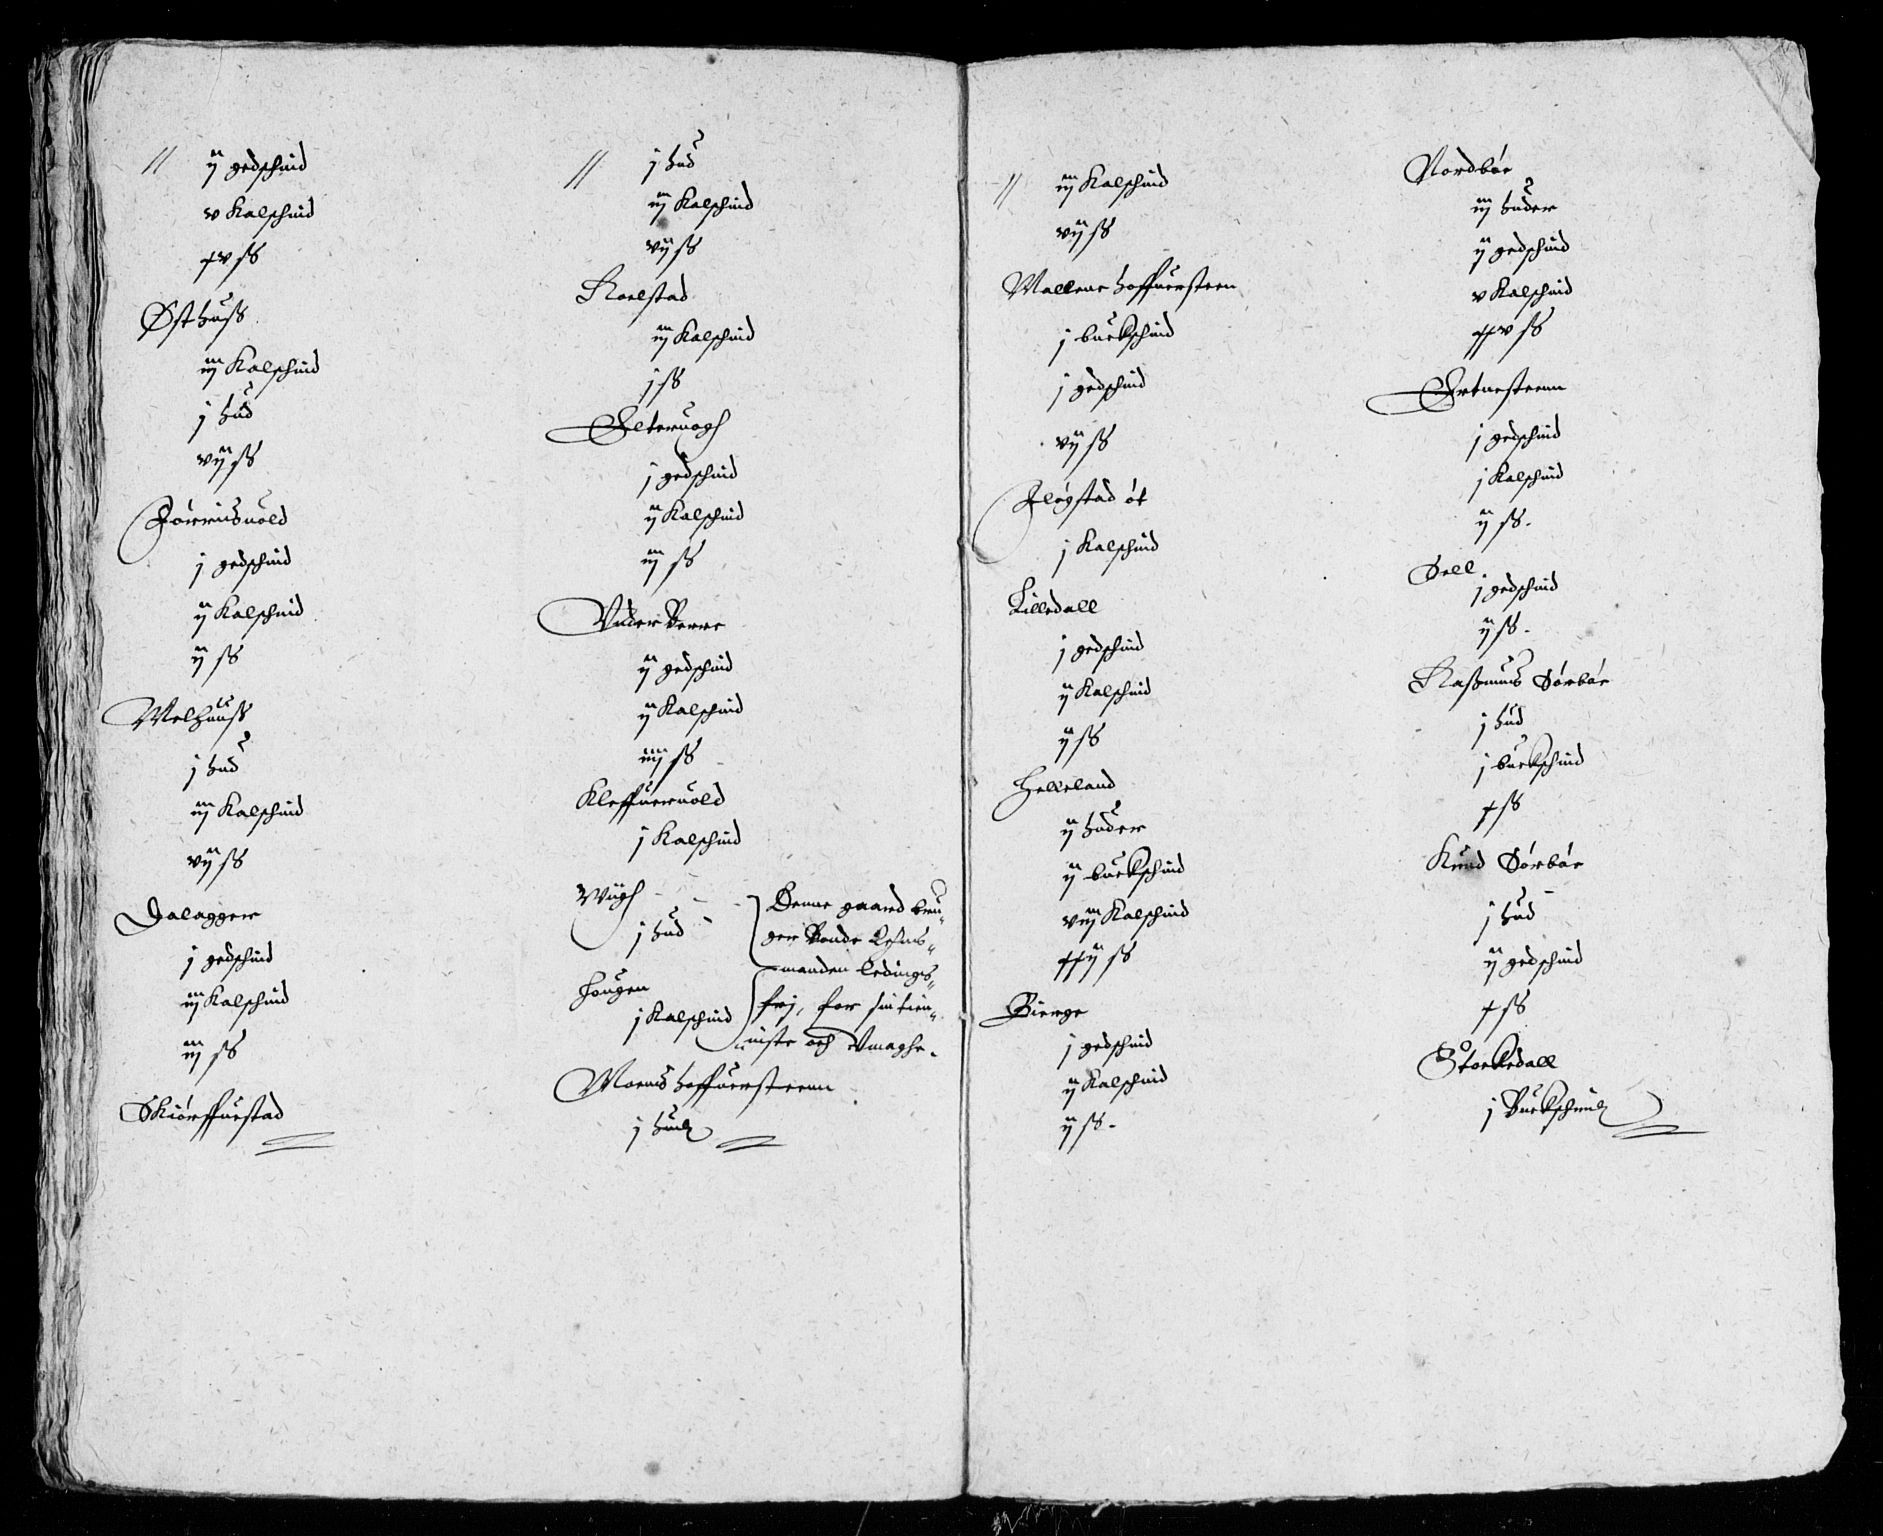 // ij gedschind
v Kalfschind
xv ß
Østhuß
iij Kalfschind
j hud
vij ß
j gedschind
ij Kalfschind
ij ß
Melhuuß
j hud
iij Kalfschind
vij ß
Dalagger
j gedschind
iij Kalfschind
iij ß
Skiørffuestad
// j hud
iij Kalfschind
vij ß
Roelstad
iij Kalfschind
j ß
j gedschind
ij Kalfschind
iij ß
Vnder Berre
ij gedschind
ij Kalfschind
iiij ß
Kleffueruold
j Kalfschind
Wiigh
j hud
Hougen
j Kalfschind
Denne gaard bru-
ger Bonde Lehns-
manden ledings-
frj, for sin tien-
niste och Vmaghe.
Moens hoffuersteenn
j hud
// iij Kalfschind
vij ß
Mallene hoffuersteen
j buckschind
j gedschind
vij ß
Fløgstad øt
j Kalfschind
Lilledall
j gedschind
ij Kalfschind
ij ß
Helleland
ij huder
ij buckschind
viij Kalfschind
xxij ß
Bierge
j gedschind
ij Kalfschind
ij ß.
Nordbøe
iij huder
ij gedschind
v Kalfschind
xxv ß
Ertnesteenn
j gedschind
j Kalfschind
ij ß.
Sell
j gedschind
ij ß.
Raßmuus Sørbøe
j hud
j buckschind
x ß
Knud Sørbøe
j hud
ij gedschind
x ß
Storkedall
j Buckschind